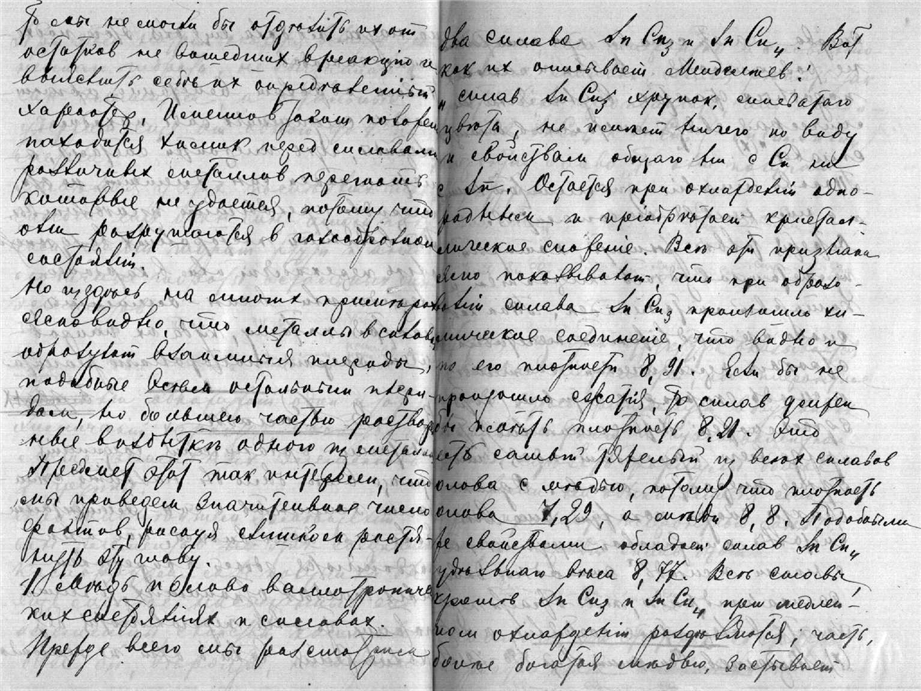 то мы не могли бы отделить их от
остатков не вошедших в реакцию и
выяснить себе их определенный
характер. Именно в таком положен
находится химик перед сплавами
различных металлов перегнать
которые не удается, потому что
они разрушаются в газообразном
состоянии.
Но и здесь на многих примерах
ясно видно, что металлы в сплавах
образуют взаимныя
подобные всем остальным
но большею частью раство
ные в избытке одного из металлов
Предмет этот так интересен, что
мы приведем значительное число
фактов, рискуя слишком растя-
нуть эту главу.
1) Медь и олово в аллотропичес
ких состояниях и сплавах.
Прежде всего мы рассмотрим
два сплава Sn Cu₃ и Sn Cu₄. Вот
как их описывает Менделеев:
„ сплав Sn Cu₃ хрупок, синеватого
цвета, не имеет ничего по виду
и свойствам общаго ни с Cu ни
с Sn. Остается при охлаждении одно-
родным и приобретает кристал-
лическое сложение. Все эти признаки
ясно показывают, что при образо-
вании сплава Sn Cu₃ произошло хи-
мическое соединение, что видно и
по его плотности 8,91. Если бы не
произошло сжатия, то сплав должен
бы иметь плотность 8,21. Это
есть самый тяжелый из всех сплавов
олова с медью, потому что плотность
олова 7,29 а меди 8,8. Подобными
же свойствами обладает сплав Sn Cu₄
удельнаго веса 8,77. Все сплавы,
кроме Sn Cu₃ и Sn Cu₄ при медлен-
ном охлаждении раздваиваются; часть,
более богатая медью, застывает